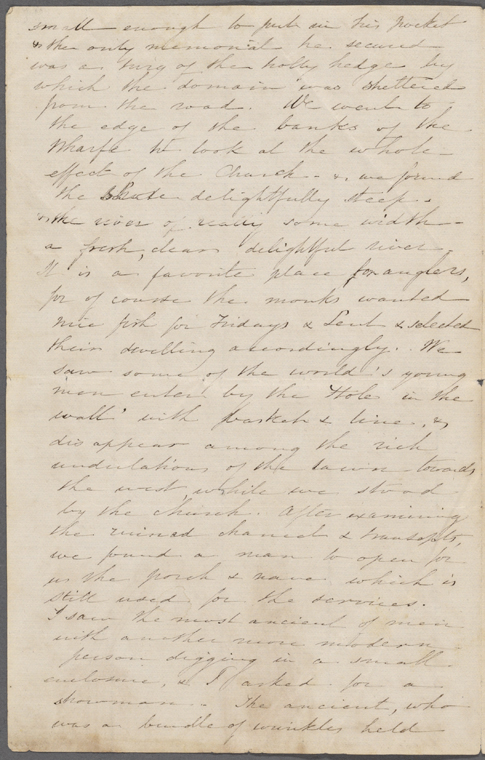 small enough to put in his pocket
& the only memorial he secured
was a twig of the holly hedge by
which the domain was sheltered
from the road. We went to
the edge of the banks of the
Wharfe to look at the whole
effect of the Church - & we found
the delightfully steep &
the river of really some width -
a fresh, clean delightful river.
It is a favorite place for anglers,
for of course the monks wanted
nice fish for Fridays & Lent & selected
their dwelling accordingly. We
saw some of the world's young
men enter by the Hole in the
wall' with basket & line, &
disappear among the rich
undulations of the lawn towards
the west, while we stood
by the church. After examining
the ruined chancel & transepts,
we found a man to open for
us the porch & nave which is
still used for the services.
I saw the most ancient of men
with another more modern
person digging in a small
enclosure, & I asked for a
showman. The ancient, who
was a bundle of wrinkles held